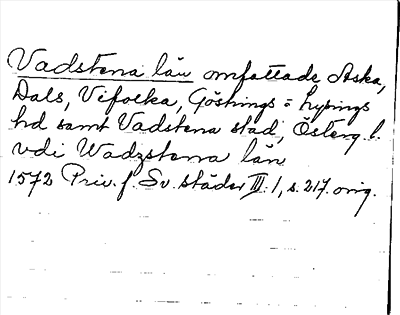 Vadstena län omfattade Aska,
Dals, Vifolka, Göstrings = Lysings
hd samt Vadstena stad, Österg. l.
vdi Wadzstena län
1572 Priv. f. Sv. städer III. 1, s. 217. orig.